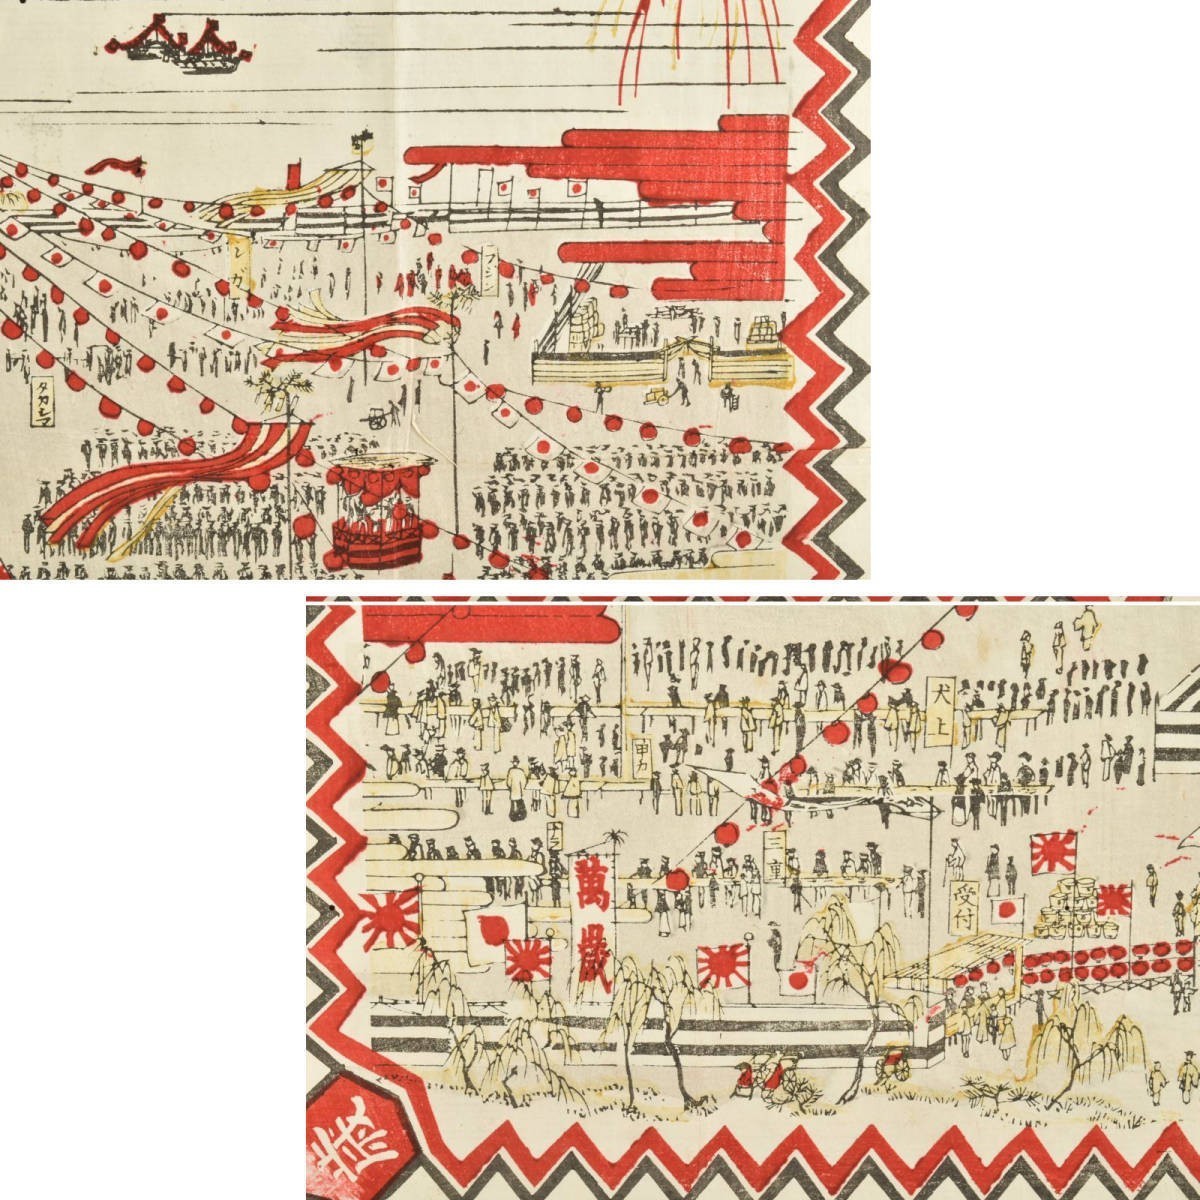 レガ
フジン
タカシマ
犬上
甲カ
トラ
三重
萬歳
受付